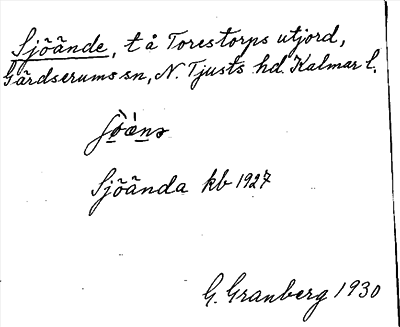 Sjöände, t å Torestorps utjord,
Gärdserums sn, N. Tjusts hd Kalmar l.
Sjöända kb 1927
G. Granberg 1930